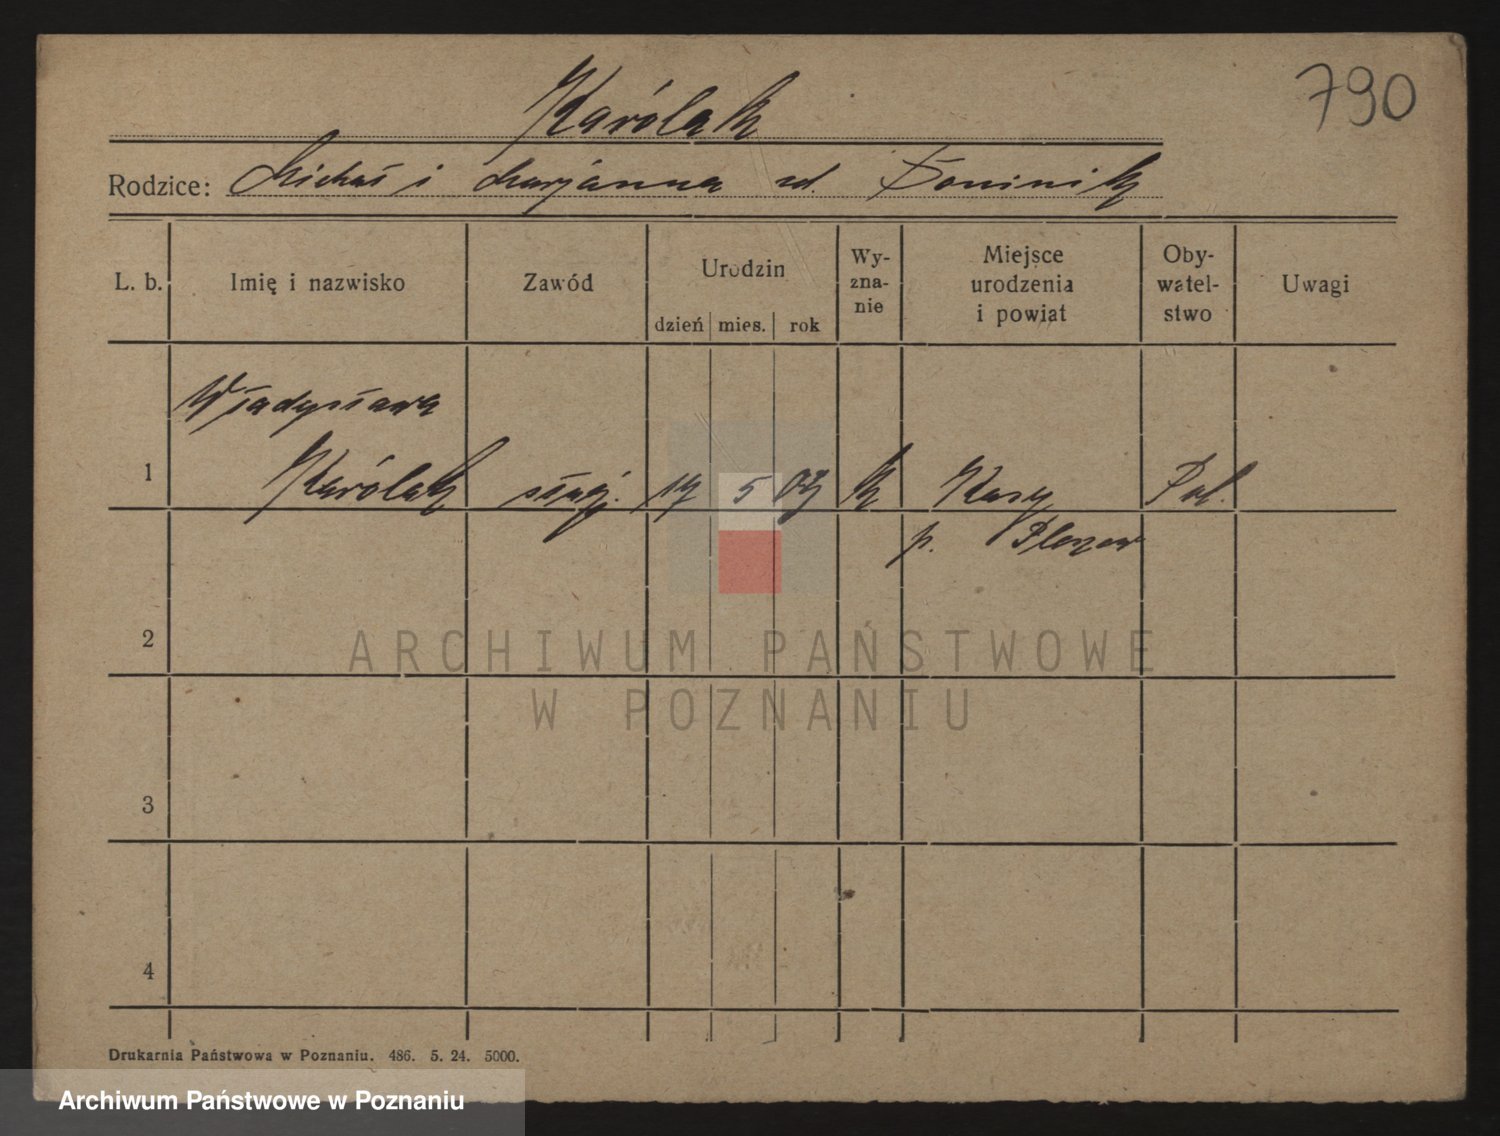 790
Karólak
Rodzice: Michał i Marjanna zd. Dominik
L. b. Imię i nazwisko Zawód Urodzin dzień mies. rok Wy-zna-nie Miejsce urodzenia i powiat Oby-watel-stwo Uwagi
Władysława
1 Karólak służ. 17 5 03 k Kuczy Pol.
p. Pleszew
2
3
4
ARCHIWUM PAŃSTWOWE
W POZNANIU
Drukarnia Państwowa w Poznaniu. 486. 5. 24. 5000.
Archiwum Państwowe w Poznaniu